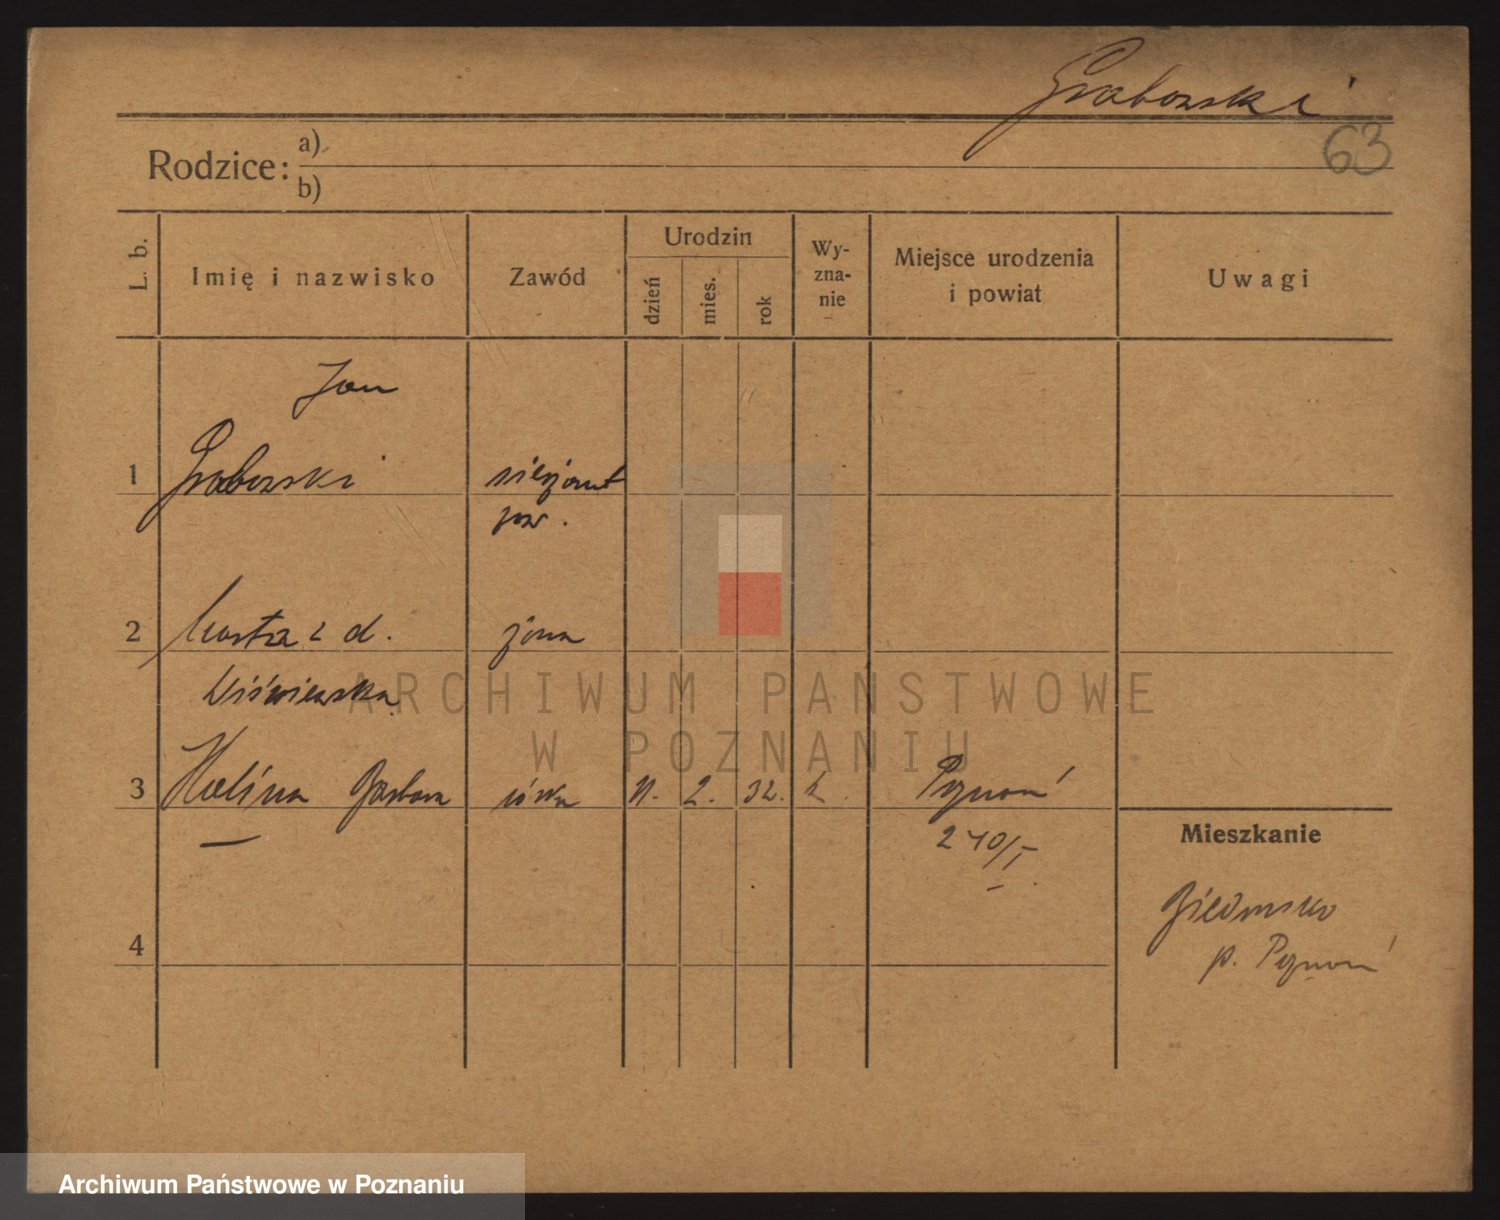 Grabowski
63
Rodzice: a)
b)
L. b.
Imię i nazwisko
Zawód
Urodzin
dzień
mies.
rok
Wy-
zna-
nie
Miejsce urodzenia
i powiat
Uwagi
Jan
1 Grabowski
2 z d. żona
Wiśniewska
3 Halina Barbara córka 11. 2. 32. k. Poznań
240/I
Mieszkanie
p. Poznań
4
ARCHIWUM PAŃSTWOWE
W POZNANIU
Archiwum Państwowe w Poznaniu